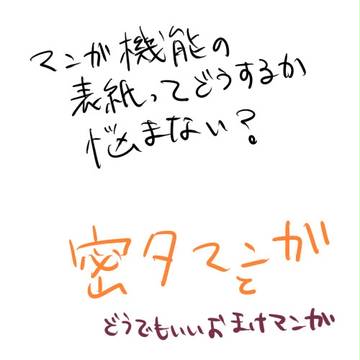 マンガ機能の
表紙ってどうするか
悩まない?
密タマンガ
と
どうでもいいおまけマンガ